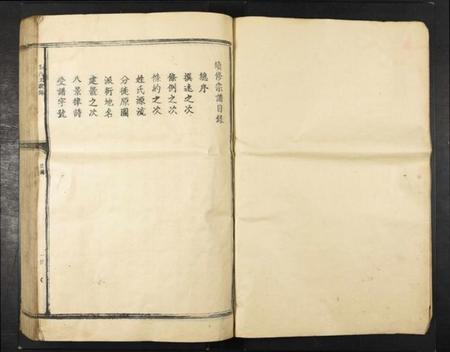 續修宗譜目錄
總序
撰述之次
條例之次
條約之次
姓氏源流
分徙原圖
派衍地名
建置之次
八景律詩
受譜字號